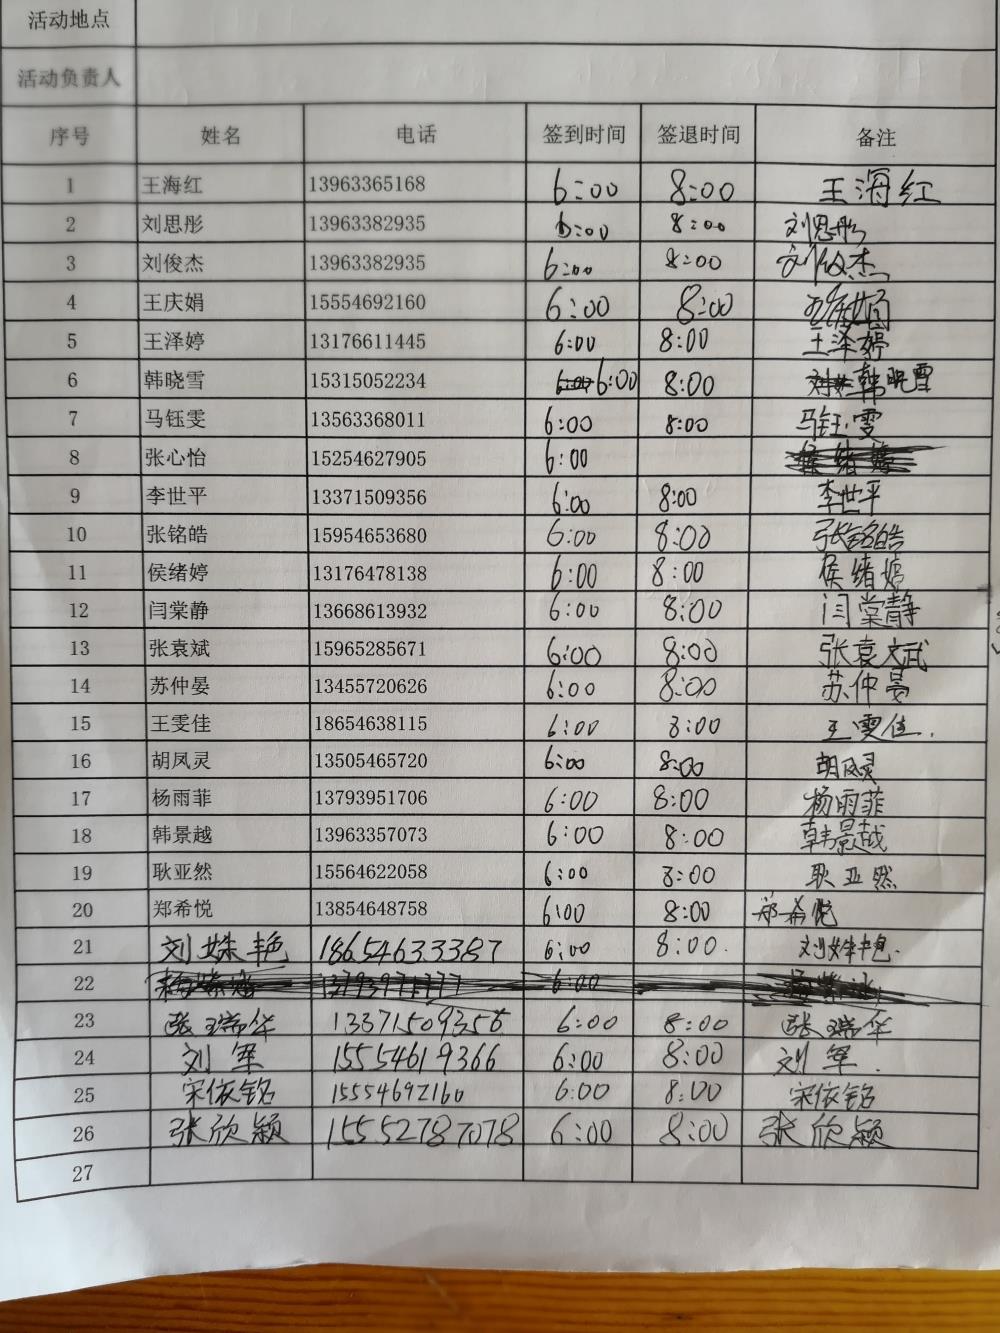 活动地点
活动负责人
序号 姓名 电话 签到时间 签退时间 备注
1 王海红 13963365168 6:00 8:00 王海红
2 刘思彤 13963382935 6:00 8:00 刘思彤
3 刘俊杰 13963382935 6:00 8:00 刘俊杰
4 王庆娟 15554692160 6:00 8:00 王庆娟
5 王泽婷 13176611445 6:00 8:00 王泽婷
6 韩晓雪 15315052234 6:00 6:00 8:00 韩晓雪
7 马钰雯 13563368011 6:00 8:00 马钰雯
8 张心怡 15254627905 6:00 侯绪婷
9 李世平 13371509356 6:00 8:00 李世平
10 张铭皓 15954653680 6:00 8:00 张铭皓
11 侯绪婷 13176478138 6:00 8:00 侯绪婷
12 闫棠静 13668613932 6:00 8:00 闫棠静
13 张袁斌 15965285671 6:00 8:00 张袁斌
14 苏仲晏 13455720626 6:00 8:00 苏仲晏
15 王雯佳 18654638115 6:00 8:00 王雯佳.
16 胡凤灵 13505465720 6:00 8:00 胡凤灵
17 杨雨菲 13793951706 6:00 8:00 杨雨菲
18 韩景越 13963357073 6:00 8:00 韩景越
19 耿亚然 15564622058 6:00 8:00 耿亚然
20 郑希悦 13854648758 6:00 8:00 郑希悦
21 刘姝艳 18654633387 6:00 8:00. 刘姝艳.
22 6:00
23 张瑞华 13371509356 6:00 8:00 张瑞华
24 刘军 15554619366 6:00 8:00 刘军.
25 宋依铭 15554692160 6:00 8:00 宋依铭
26 张欣颖 15552787078 6:00 8:00 张欣颖
27